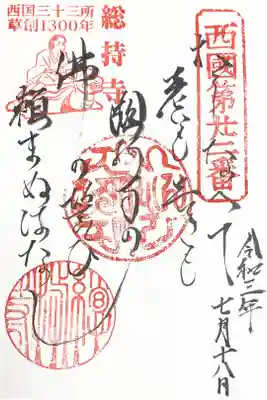 西国三十三所
草創1300年
総持寺
西國第廿二番
老も若きも
佛の誓ひ
頼まぬはなし
令和二年
七月十八日